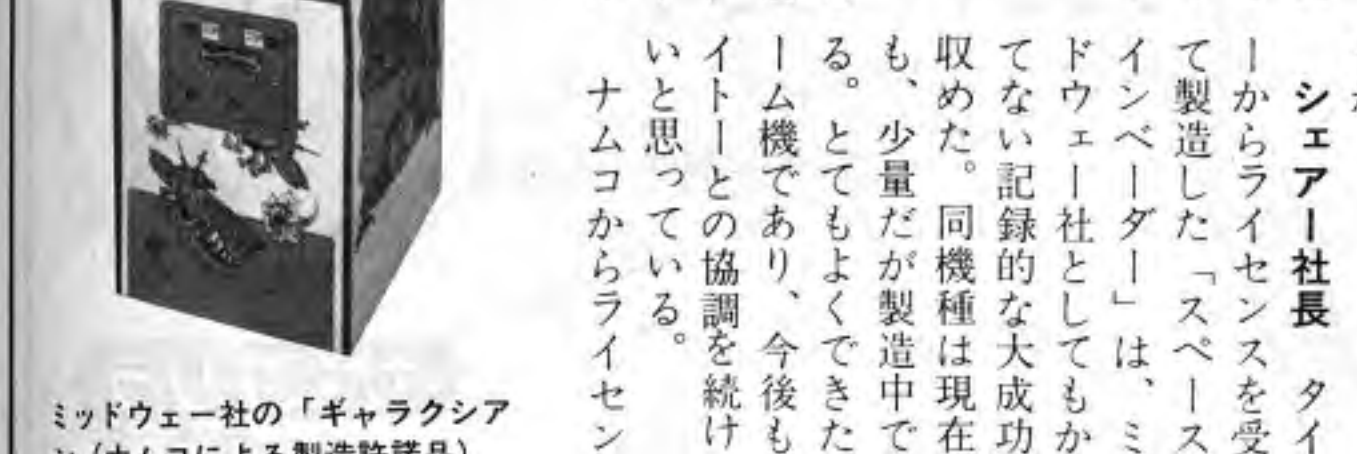 シェアー社長　タイ
ーからライセンスを受
て製造した「スペース
インベーダー」は、ミ
ドウェー社としてもか
てない記録的な大成功
収めた。同機種は現在
も、少量だが製造中で
る。とてもよくできた
ーム機であり、今後も
イトーとの協調を続け
いと思っている。
ナムコからライセン
ミッドウェー社の「ギャラクシア
ン（ナムコによる製造許諾品）